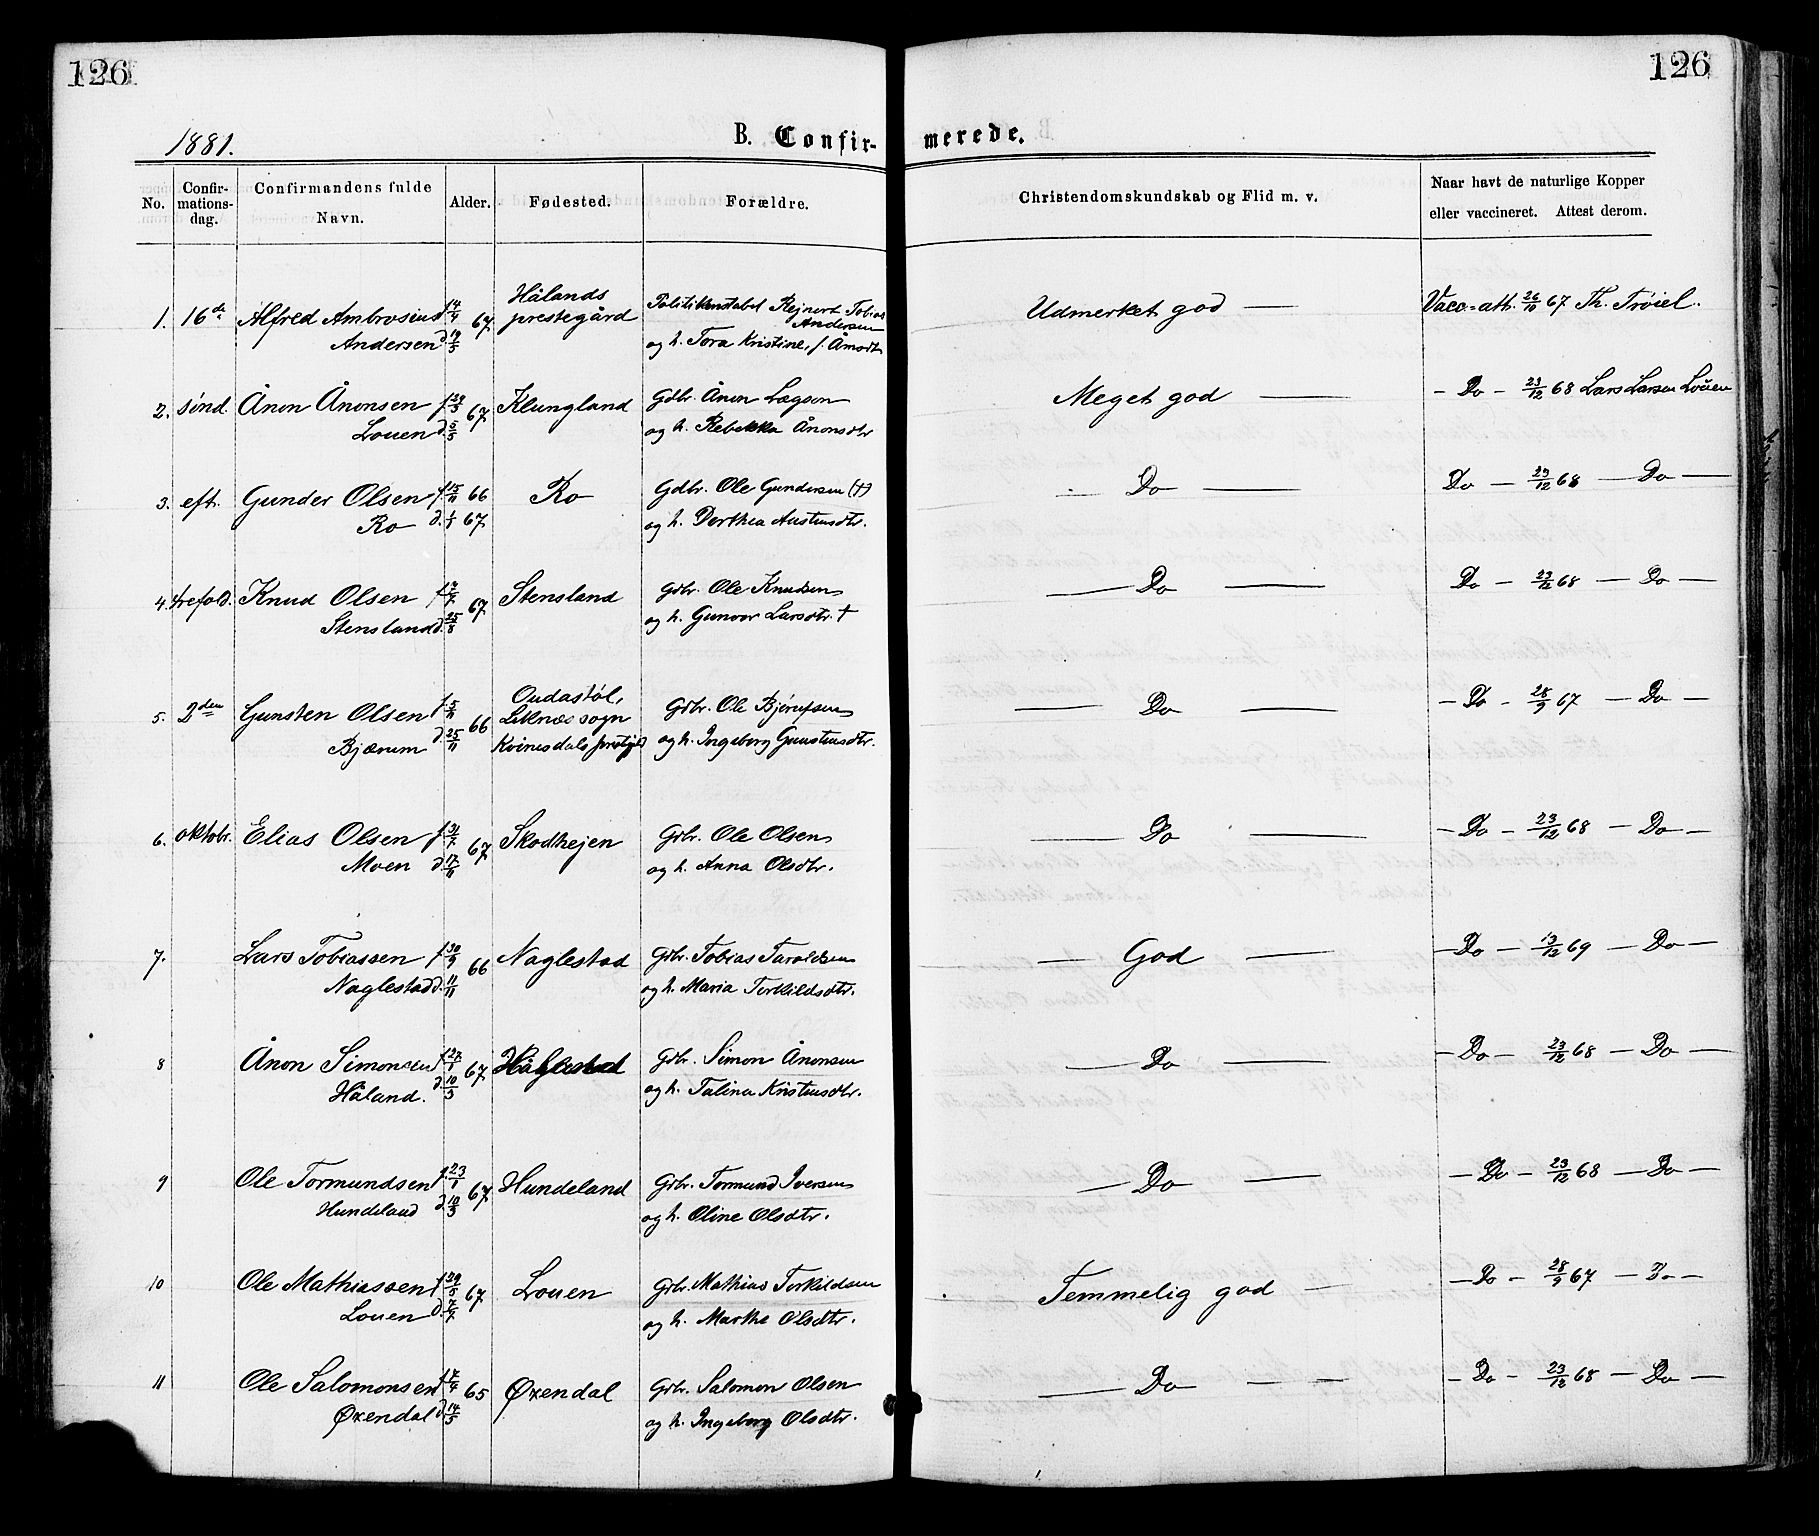 126
126
1881.
B. Confir-
merede.
No.
Confir-
mations-
dag.
Confirmandens fulde
Navn.
Alder.
Fødested.
Forældre.
Christendomskundskab og Flid m. v.
Naar havt de naturlige Kopper
eller vaccineret. Attest derom.
1. 16de Alfred Ambrosius f. 14/4 67 Hålands Politikonstabel Rejnert Tobias Udmerket god — Vacc.-att. 26/10 67 Th. Trøiel.
Andersen d. 19/5 prestegård Andersen
og h. Tora Kristine, f. Åmodt
2. sønd. Ånon Ånonsen f. 67 Klungland Gdbr. Ånon Lagson Meget god — - Do - 23/12 68 Lars Larsen Louen
Louen d. 5/5 og h. Rebekka Ånonsdtr
3. eft. Gunder Olsen f. 15/11 66 Ro Gdbr. Ole Gundersen (†) — Do — Do - 23/12 68 — Do —
Ro d. 1/1 67 og h. Dorthea Austensdtr.
4. trefold. Knud Olsen f. 7/7 67 Stensland Gdbr. Ole Knudsen — Do — Do - 23/12 68 — Do —
Stensland d. 25/8 og h. Gunvor Larsdtr. †
5. 2den Gunsten Olsen f. 5/11 66 Oudastøl, Gdbr. Ole — Do — - Do - 28/9 67 — Do —
Bjærum d. 25/11 Liknæs sogn og h. Ingeborg Gunstensdtr.
Kvinesdals prestgjd
6. oktobr. Elias Olsen f. 31/7 67 Skodhejen Gdbr. Ole Olsen — Do — - Do - 23/12 68 — Do —
Moen d. 17/11 og h. Anna Olsdtr.
7. Lars Tobiassen f. 30/9 66 Naglestad Gdbr. Tobias Taraldsen — God — - Do - 13/12 69 — Do —
Naglestad d. 11/11 og h. Maria Terkildsdtr.
8 Ånon Simonsen f. 27/1 67 Gdbr. Simon Ånonsen — Do — - Do - 23/12 68 — Do —
Håland. d. 10/3 og h. Talina Kristensdtr.
9 Ole Tormundsen f. 23/1 67 Hundeland Gdbr. Tormund Iversen — Do — - Do - 23/12 68 — Do —
Hundeland d. 10/3 og h. Oline Olsdtr.
10 Ole Mathiassen f. 29/5 67 Louen Gdbr. Mathias Terkildsen Temmelig god — - Do - 28/9 67 — Do -
Louen d. 7/7 og h. Marthe Olsdtr.
11 Ole Salomonsen f. 7/4 65 Øxendal Gdbr. Salomon Olsen — Do — - Do - 23/12 68 — Do —
Øxendal d. 14/5 og h. Ingeborg Olsdtr.